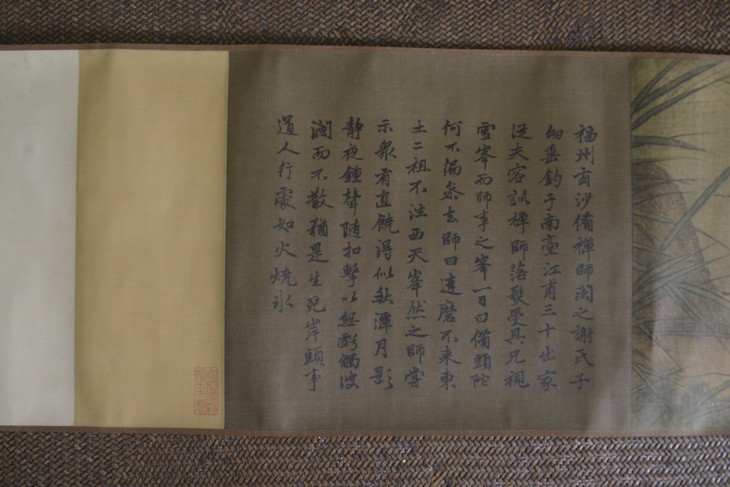 福州玄沙備禪師閩之謝氏子
幼垂釣于南臺江甫三十出家
從夫容訓禪師落髮受具兄視
雪峯而師事之峯一日曰備頭陀
何不徧叅去師曰達磨不來東
土二祖不往西天峯然之師甞
示衆有直饒得似秋潭月影
靜夜鍾聲隨扣擊以無虧觸波
瀾而不散猶是生死岸頭事
道人行處如火燒氷